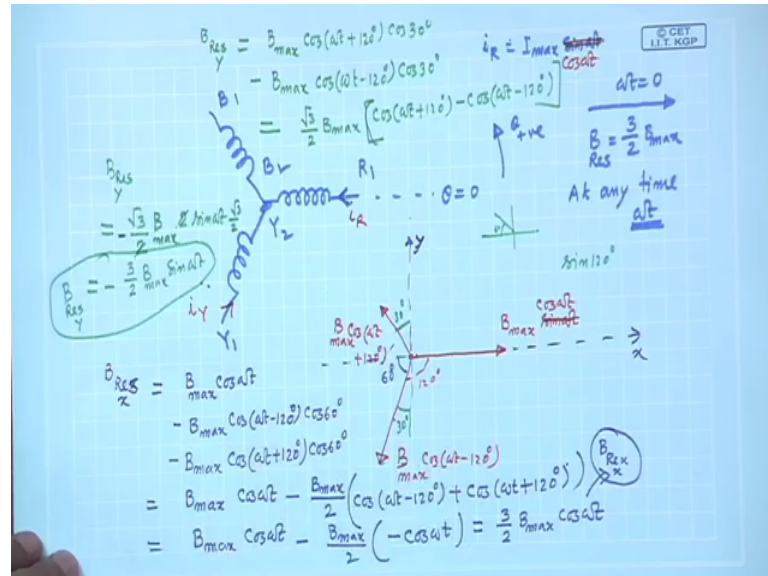 B_Res y = B_max Cos(ωt+120°) Cos30°
- B_max Cos(ωt-120°) Cos30°
= √3/2 B_max [Cos(ωt+120°) - Cos(ωt-120°)]
i_R = I_max sinωt
Cosωt
© CET
I.I.T. KGP
ωt=0
B_Res = 3/2 B_max
At any time
ωt
θ
+ve
B1
B2
R1
i_R
θ=0
Y2
i_Y
Y1
B_Res y
= -√3/2 B_max 2 sinωt √3/2
B_Res y = -3/2 B_max Sinωt
θ
sin120°
y
30°
B_max Cos(ωt
+120°)
60°
120°
30°
B_max Cosωt
sinωt
x
B_max Cos(ωt-120°)
B_Res x = B_max Cosωt
- B_max Cos(ωt-120°) Cos60°
- B_max Cos(ωt+120°) Cos60°
= B_max Cosωt - B_max/2 (Cos(ωt-120°) + Cos(ωt+120°))
B_Res x
= B_max Cosωt - B_max/2 (-Cosωt) = 3/2 B_max Cosωt